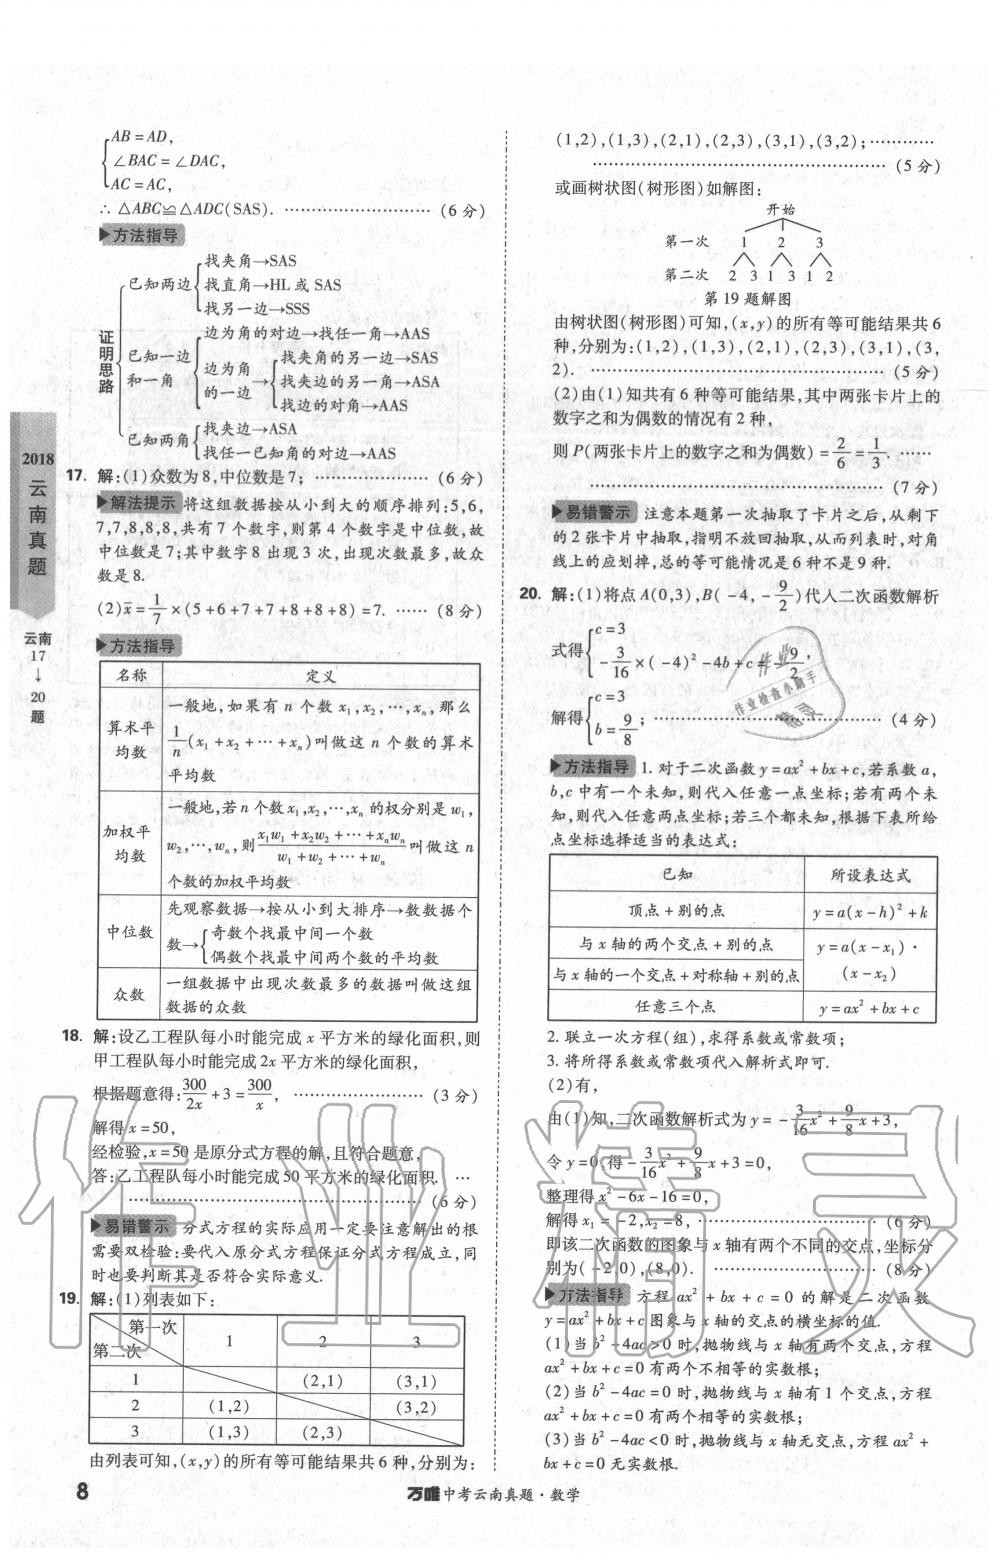 AB=AD,
∠BAC=∠DAC,
AC=AC,
∴△ABC≌△ADC(SAS). ……………………(6分)
方法指导
证明思路
已知两边
找夹角→SAS
找直角→HL或SAS
找另一边→SSS
已知一边和一角
边为角的对边→找任一角→AAS
边为角的一边→
找夹角的另一边→SAS
找夹边的另一角→ASA
找边的对角→AAS
已知两角
找夹边→ASA
找任一已知角的对边→AAS
17. 解:(1)众数为8,中位数是7; ………………(6分)
解法提示 将这组数据按从小到大的顺序排列:5,6,
7,7,8,8,8,共有7个数字,则第4个数字是中位数,故
中位数是7;其中数字8出现3次,出现次数最多,故众
数是8.
(2)x̄=1/7×(5+6+7+7+8+8+8)=7. ……(8分)
方法指导
名称 定义
算术平均数
一般地,如果有n个数x₁,x₂,…,xₙ,那么
1/n(x₁+x₂+…+xₙ)叫做这n个数的算术
平均数
加权平均数
一般地,若n个数x₁,x₂,…,xₙ的权分别是w₁,
w₂,…,wₙ,则(x₁w₁+x₂w₂+…+xₙwₙ)/(w₁+w₂+…+wₙ)叫做这n
个数的加权平均数
中位数
先观察数据→按从小到大排序→数数据个
数→
奇数个找最中间一个数
偶数个找最中间两个数的平均数
众数
一组数据中出现次数最多的数据叫做这组
数据的众数
18. 解:设乙工程队每小时能完成x平方米的绿化面积,则
甲工程队每小时能完成2x平方米的绿化面积,
根据题意得:300/2x+3=300/x, …………………(3分)
解得x=50,
经检验,x=50是原分式方程的解,且符合题意,
答:乙工程队每小时能完成50平方米的绿化面积. …
……………………………………………(6分)
易错警示 分式方程的实际应用一定要注意解出的根
需要双检验:要代入原分式方程保证分式方程成立,同
时也要判断其是否符合实际意义.
19. 解:(1)列表如下:
第一次
第二次
1 2 3
1 (2,1) (3,1)
2 (1,2) (3,2)
3 (1,3) (2,3)
由列表可知,(x,y)的所有等可能结果共6种,分别为:
(1,2),(1,3),(2,1),(2,3),(3,1),(3,2);…………
……………………………………………(5分)
或画树状图(树形图)如解图:
开始
第一次 1 2 3
第二次 2 3 1 3 1 2
第19题解图
由树状图(树形图)可知,(x,y)的所有等可能结果共6
种,分别为:(1,2),(1,3),(2,1),(2,3),(3,1),(3,
2). …………………………………………(5分)
(2)由(1)知共有6种等可能结果,其中两张卡片上的
数字之和为偶数的情况有2种,
则P(两张卡片上的数字之和为偶数)=2/6=1/3. ……
……………………………………………(7分)
易错警示 注意本题第一次抽取了卡片之后,从剩下
的2张卡片中抽取,指明不放回抽取,从而列表时,对角
线上的应划掉,总的等可能情况是6种不是9种.
20. 解:(1)将点A(0,3),B(-4,-9/2)代人二次函数解析
式得
c=3
-3/16×(-4)²-4b+c=-9/2,
解得
c=3
b=9/8
; ……………………………(4分)
方法指导 1.对于二次函数y=ax²+bx+c,若系数a,
b,c中有一个未知,则代入任意一点坐标;若有两个未
知,则代入任意两点坐标;若三个都未知,根据下表所给
点坐标选择适当的表达式:
已知 所设表达式
顶点+别的点 y=a(x-h)²+k
与x轴的两个交点+别的点 y=a(x-x₁)·
与x轴的一个交点+对称轴+别的点 (x-x₂)
任意三个点 y=ax²+bx+c
2.联立一次方程(组),求得系数或常数项;
3.将所得系数或常数项代入解析式即可.
(2)有,
由(1)知,二次函数解析式为y=-3/16x²+9/8x+3,
令y=0,得-3/16x²+9/8x+3=0,
整理得x²-6x-16=0,
解得x₁=-2,x₂=8, …………………………(6分)
即该二次函数的图象与x轴有两个不同的交点,坐标分
别为(-2,0),(8,0). ………………………(8分)
方法指导 方程ax²+bx+c=0的解是二次函数
y=ax²+bx+c图象与x轴的交点的横坐标的值.
(1)当b²-4ac>0时,抛物线与x轴有两个交点,方程
ax²+bx+c=0有两个不相等的实数根;
(2)当b²-4ac=0时,抛物线与x轴有1个交点,方程
ax²+bx+c=0有两个相等的实数根;
(3)当b²-4ac<0时,抛物线与x轴无交点,方程ax²+
bx+c=0无实数根.
2018
云南真题
云南
17
↓
20
题
8
万唯中考云南真题·数学
作业精灵
作业
作业检查小助手
精灵